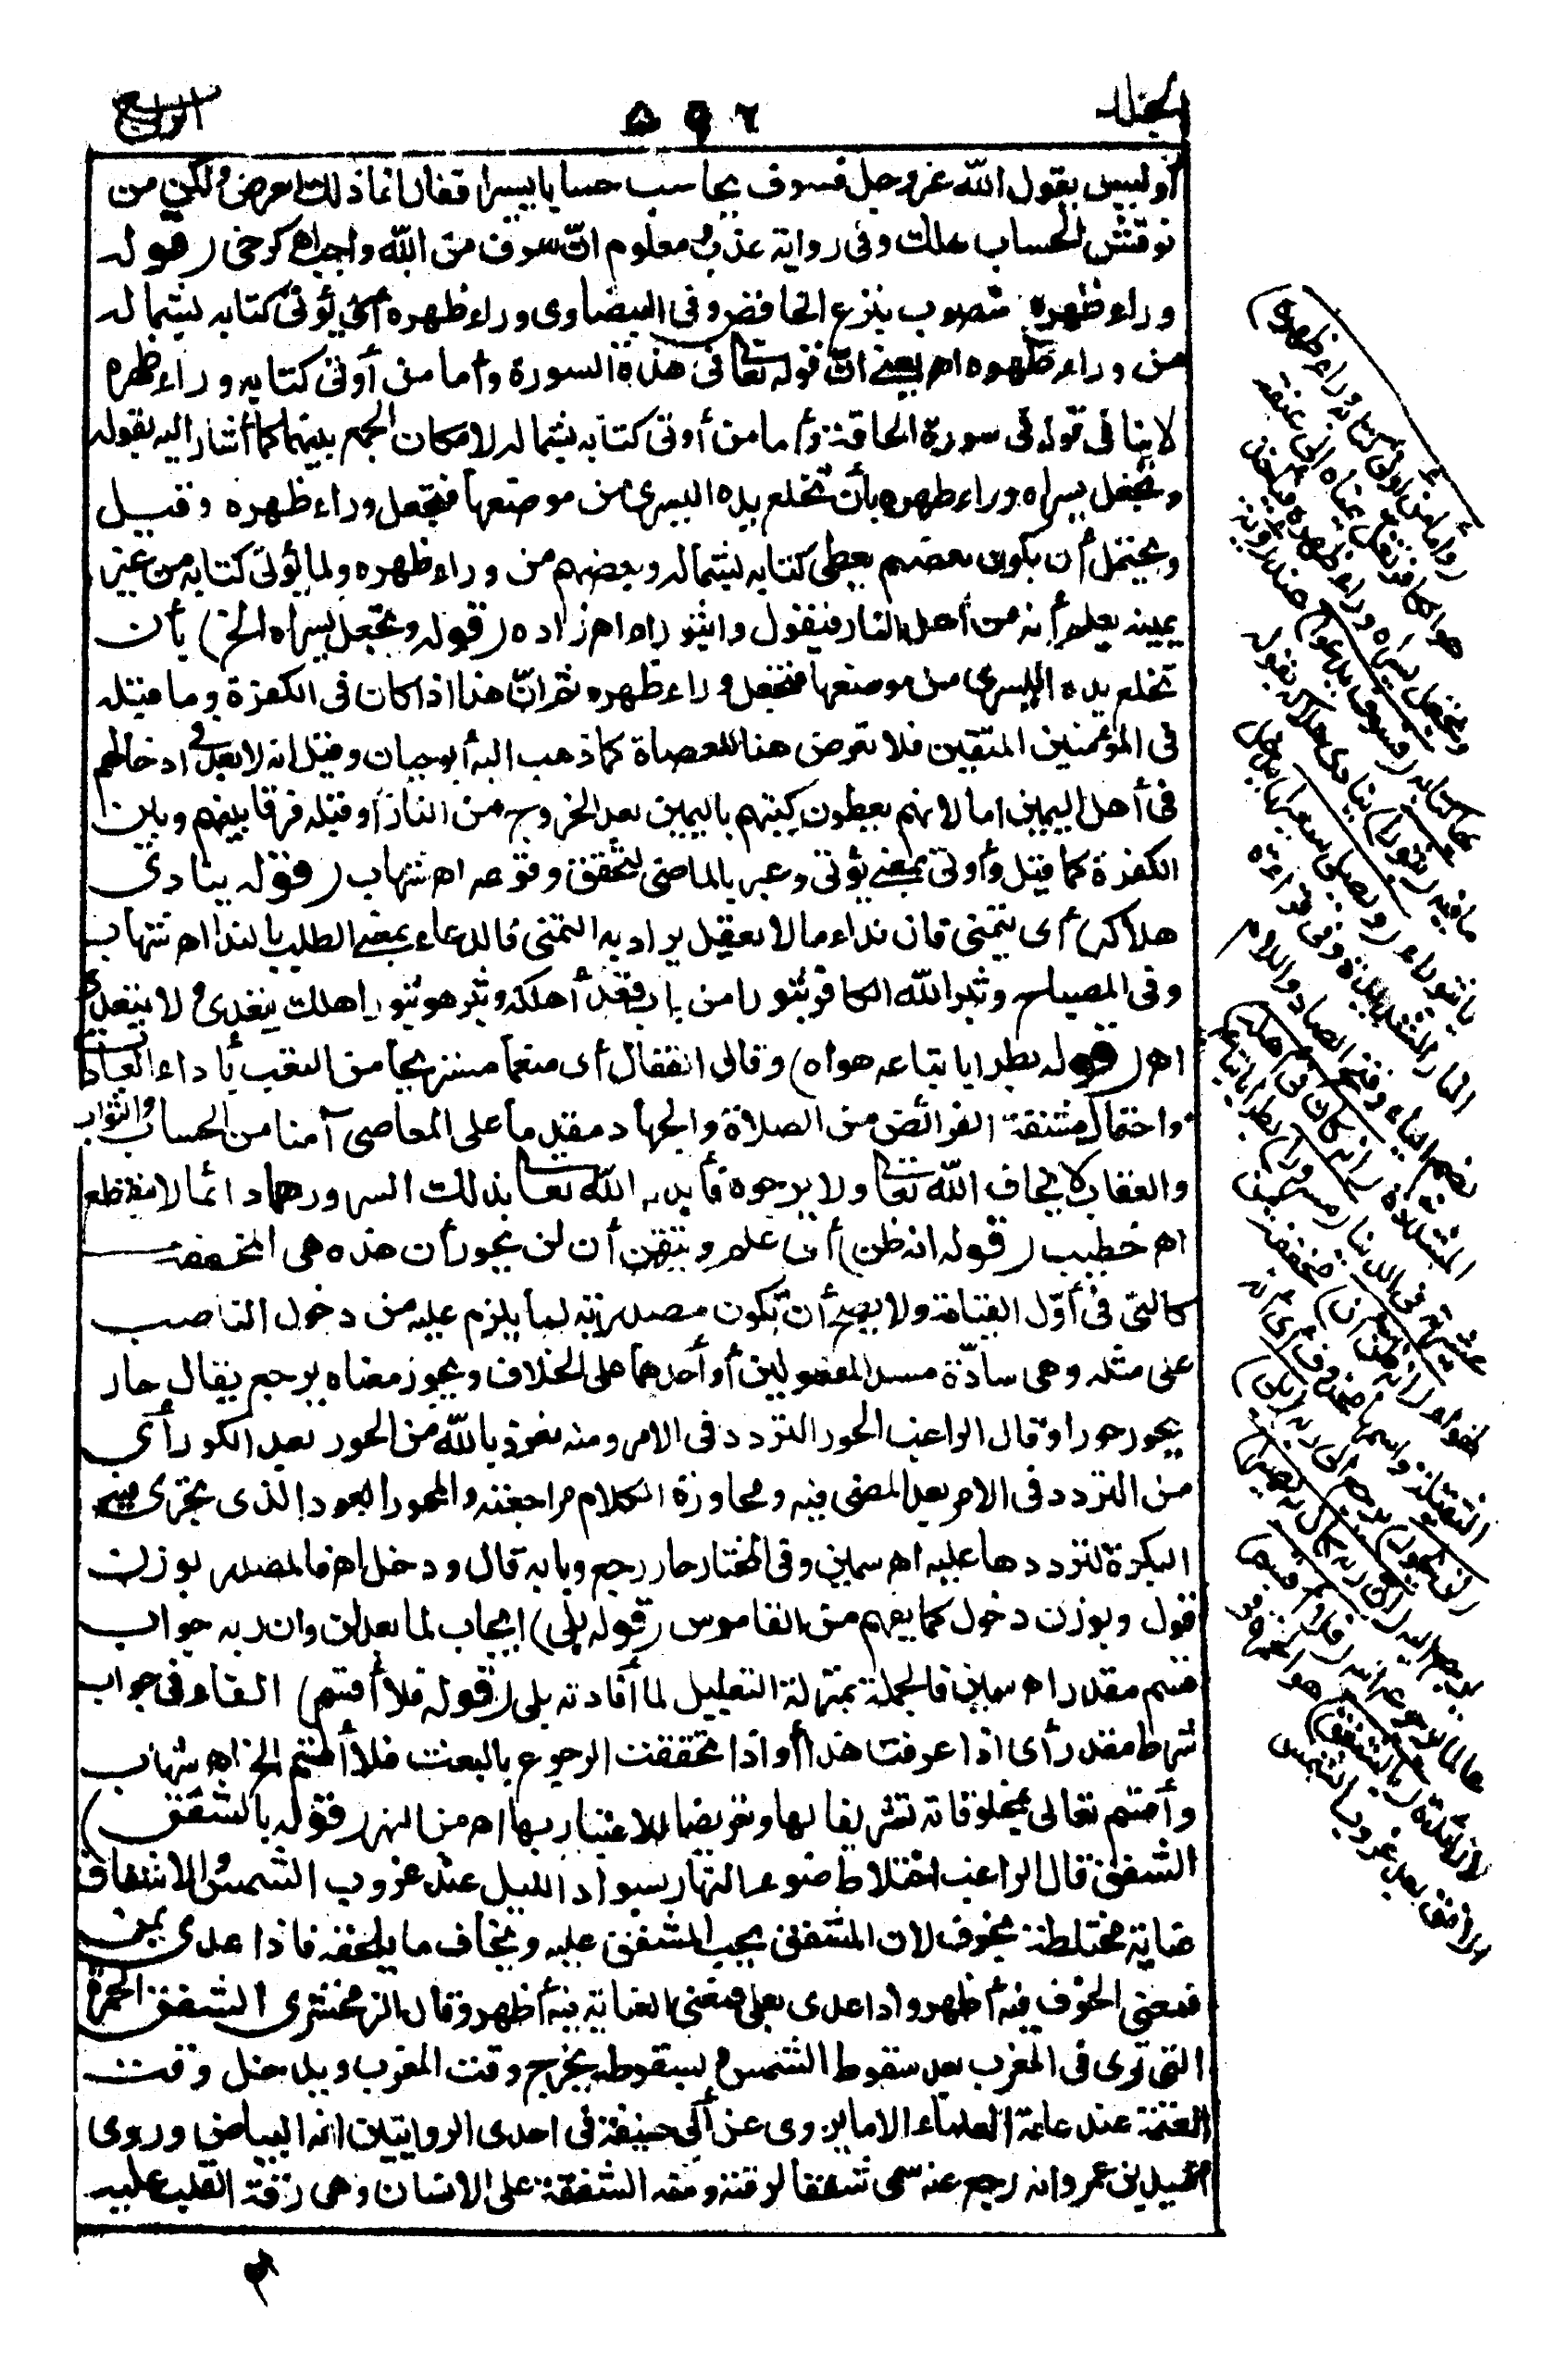 الجلد
٥٩٦
الرابع
أوليس يقول الله عز وجل فسوف يحاسب حسابا يسيرا فقال انما ذلك العرض ولكن من
نوقش الحساب هلك وفى رواية عذب ومعلوم انّ سوف من الله واجب اه كرخى (قوله
وراء ظهره) منصوب بنزع الخافض وفى البيضاوى وراء ظهره أى يؤتى كتابه بشماله
من وراء ظهره اه يعنى انّ قوله تعالى فى هذه السورة وأما من أوتى كتابه وراء ظهره
لا ينافى قوله فى سورة الحاقة وأما من أوتى كتابه بشماله لامكان الجمع بينهما كما أشار اليه بقوله
وتجعل يسراه وراء ظهره بأن تخلع يده اليسرى من موضعها فتجعل وراء ظهره وقيل
ويحتمل أن يكون بعضهم يعطى كتابه بشماله وبعضهم من وراء ظهره ولما يؤتى كتابه من غير
يمينه يعلم أنه من أهل النار فيقول واثبوراه اه زاده (قوله وتجعل يسراه الخ) بأن
تخلع يده اليسرى من موضعها فتجعل وراء ظهره ثم انّ هذا اذا كان فى الكفرة وما قبله
فى المؤمنين المتقين فلا تعرض هنا للعصاة كما ذهب اليه أبو حيان وقيل انه لا بعد فى ادخالهم
فى أهل اليمين اما لانهم يعطون كتبهم باليمين بعد الخروج من النار أو قبله فرقا بينهم وبين
الكفرة كما قيل وأوتى بمعنى يؤتى وعبر بالماضى لتحقق وقوعه اه شهاب (قوله ينادى
هلاكه) أى يتمنى فان نداء ما لا يعقل يراد به التمنى فالدعاء بمعنى الطلب بالندا اه شهاب
وفى المصباح وثبر الله الكافر ثبورا من باب قعد أهلكه وثبر هو ثبورا هلك يتعدى ولا يتعدى
اه (قوله بطرا باتباعه هواه) وقال القفال أى منعما مستريحا من التعب بأداء العبادات
واحتمال مشقة الفرائض من الصلاة والجهاد مقدما على المعاصى آمنا من الحساب والثواب
والعقاب لا يخاف الله تعالى ولا يرجوه فأبدله الله تعالى بذلك السرور هما دائما لا ينقطع
اه خطيب (قوله انه ظن) أى علم وتيقن أن لن يحور أن هذه هى المخففة
كالتى فى أوّل القيامة ولا يصح أن تكون مصدرية لما يلزم عليه من دخول الناصب
على مثله وهى سادّة مسد المفعولين أو أحدهما على الخلاف ويحور معناه يرجع يقال حار
يحور حورا وقال الراغب الحور التردد فى الامر ومنه نعوذ بالله من الحور بعد الكور أى
من التردد فى الامر بعد المضى فيه ومحاورة الكلام مراجعته والمحور العود الذى تجرى فيه
البكرة لترددها عليه اه سمين وفى المختار حار رجع وبابه قال ودخل اه فالمصدر بوزن
قول وبوزن دخول كما يفهم من القاموس (قوله بلى) ايجاب لما بعد لن وان ربه جواب
قسم مقدر اه سمين فالجملة بمنزلة التعليل لما أفادته بلى (قوله فلا أقسم) الفاء فى جواب
شرط مقدر أى اذا عرفت هذا أو اذا تحققت الرجوع بالبعث فلا أقسم الخ اه شهاب
وأقسم تعالى بمخلوقاته تشريفا لها وتعريضا للاعتبار بها اه من النهر (قوله بالشفق)
الشفق قال الراغب اختلاط ضوء النهار بسواد الليل عند غروب الشمس والاشفاق
عناية مختلطة بخوف لان المشفق يحب المشفق عليه ويخاف ما يلحقه فاذا عدى بمن
فمعنى الخوف فيه أظهر واذا عدى بعلى فمعنى العناية فيه أظهر وقال الزمخشرى الشفق الحمرة
التى ترى فى المغرب بعد سقوط الشمس وبسقوطه يخرج وقت المغرب ويدخل وقت
العتمة عند عامة العلماء الا ما يروى عن أبى حنيفة فى احدى الروايتين انه البياض وروى
أسد بن عمرو انه رجع عنه سمى شفقا لرقته ومنه الشفقة على الانسان وهى رقة القلب عليه
(وأما من أوتى كتابه وراء ظهره)
هو الكافر تغل يمناه الى عنقه
وتجعل يسراه وراء ظهره فيأخذ
بها كتابه (فسوف يدعوا) عند رؤيته
ما فيه (ثبورا) ينادى هلاكه بقوله
يا ثبوراه (ويصلى سعيرا) يدخل
النار الشديدة وفى قراءة
بضم الياء وفتح الصاد واللام
المشددة (انه كان فى أهله)
عشيرته فى الدنيا (مسرورا) بطرا باتباعه
لهواه (انه ظن أن) مخففة من
الثقيلة واسمها محذوف أى انه
(لن يحور) يرجع الى ربه (بلى)
يرجع اليه (ان ربه كان به بصيرا)
عالما برجوعه اليه (فلا أقسم)
لا زائدة (بالشفق) هو الحمرة فى
الافق بعد غروب الشمس